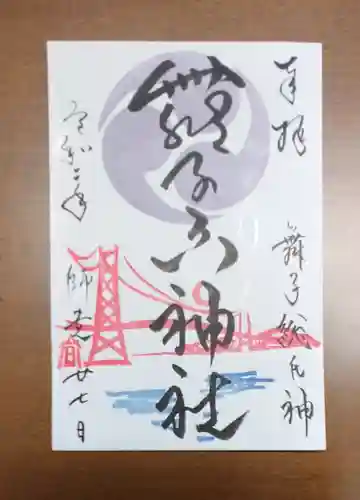 奉拝
舞子総氏神
舞子六神社
令和二年
師走廿七日